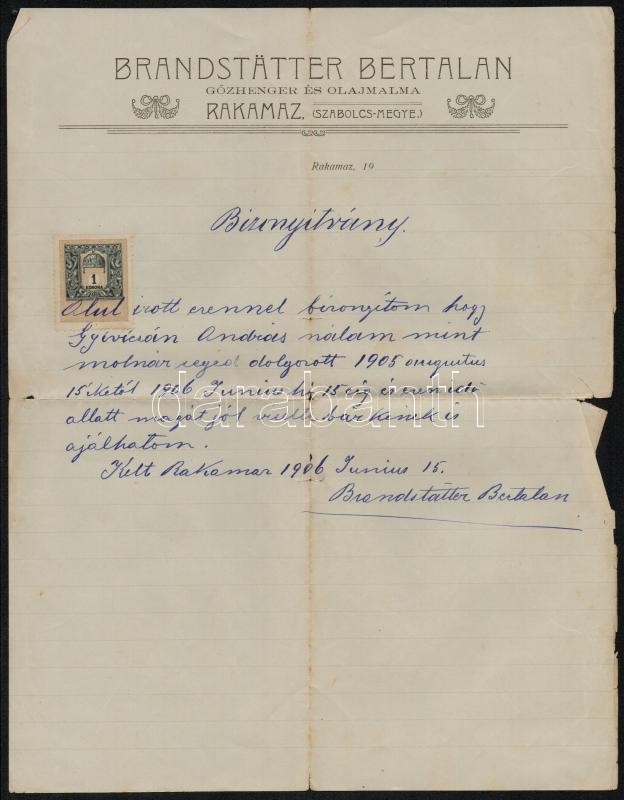 BRANDSTÄTTER BERTALAN
GŐZHENGER ÉS OLAJMALMA
RAKAMAZ, (SZABOLCS-MEGYE.)
Rakamaz, 19
Bizonyitvány.
1
KORONA
Alul irott ezennel bizonyitom hogy
András nálam mint
molnár segéd dolgozott 1905 augustus
15 1906 Junius hó 15 ig és ezen idő
allatt magát jól bárkinek is
ajálhatom.
Kelt Rakamaz 1906 Junius 15.
Brandstätter Bertalan
darabanth